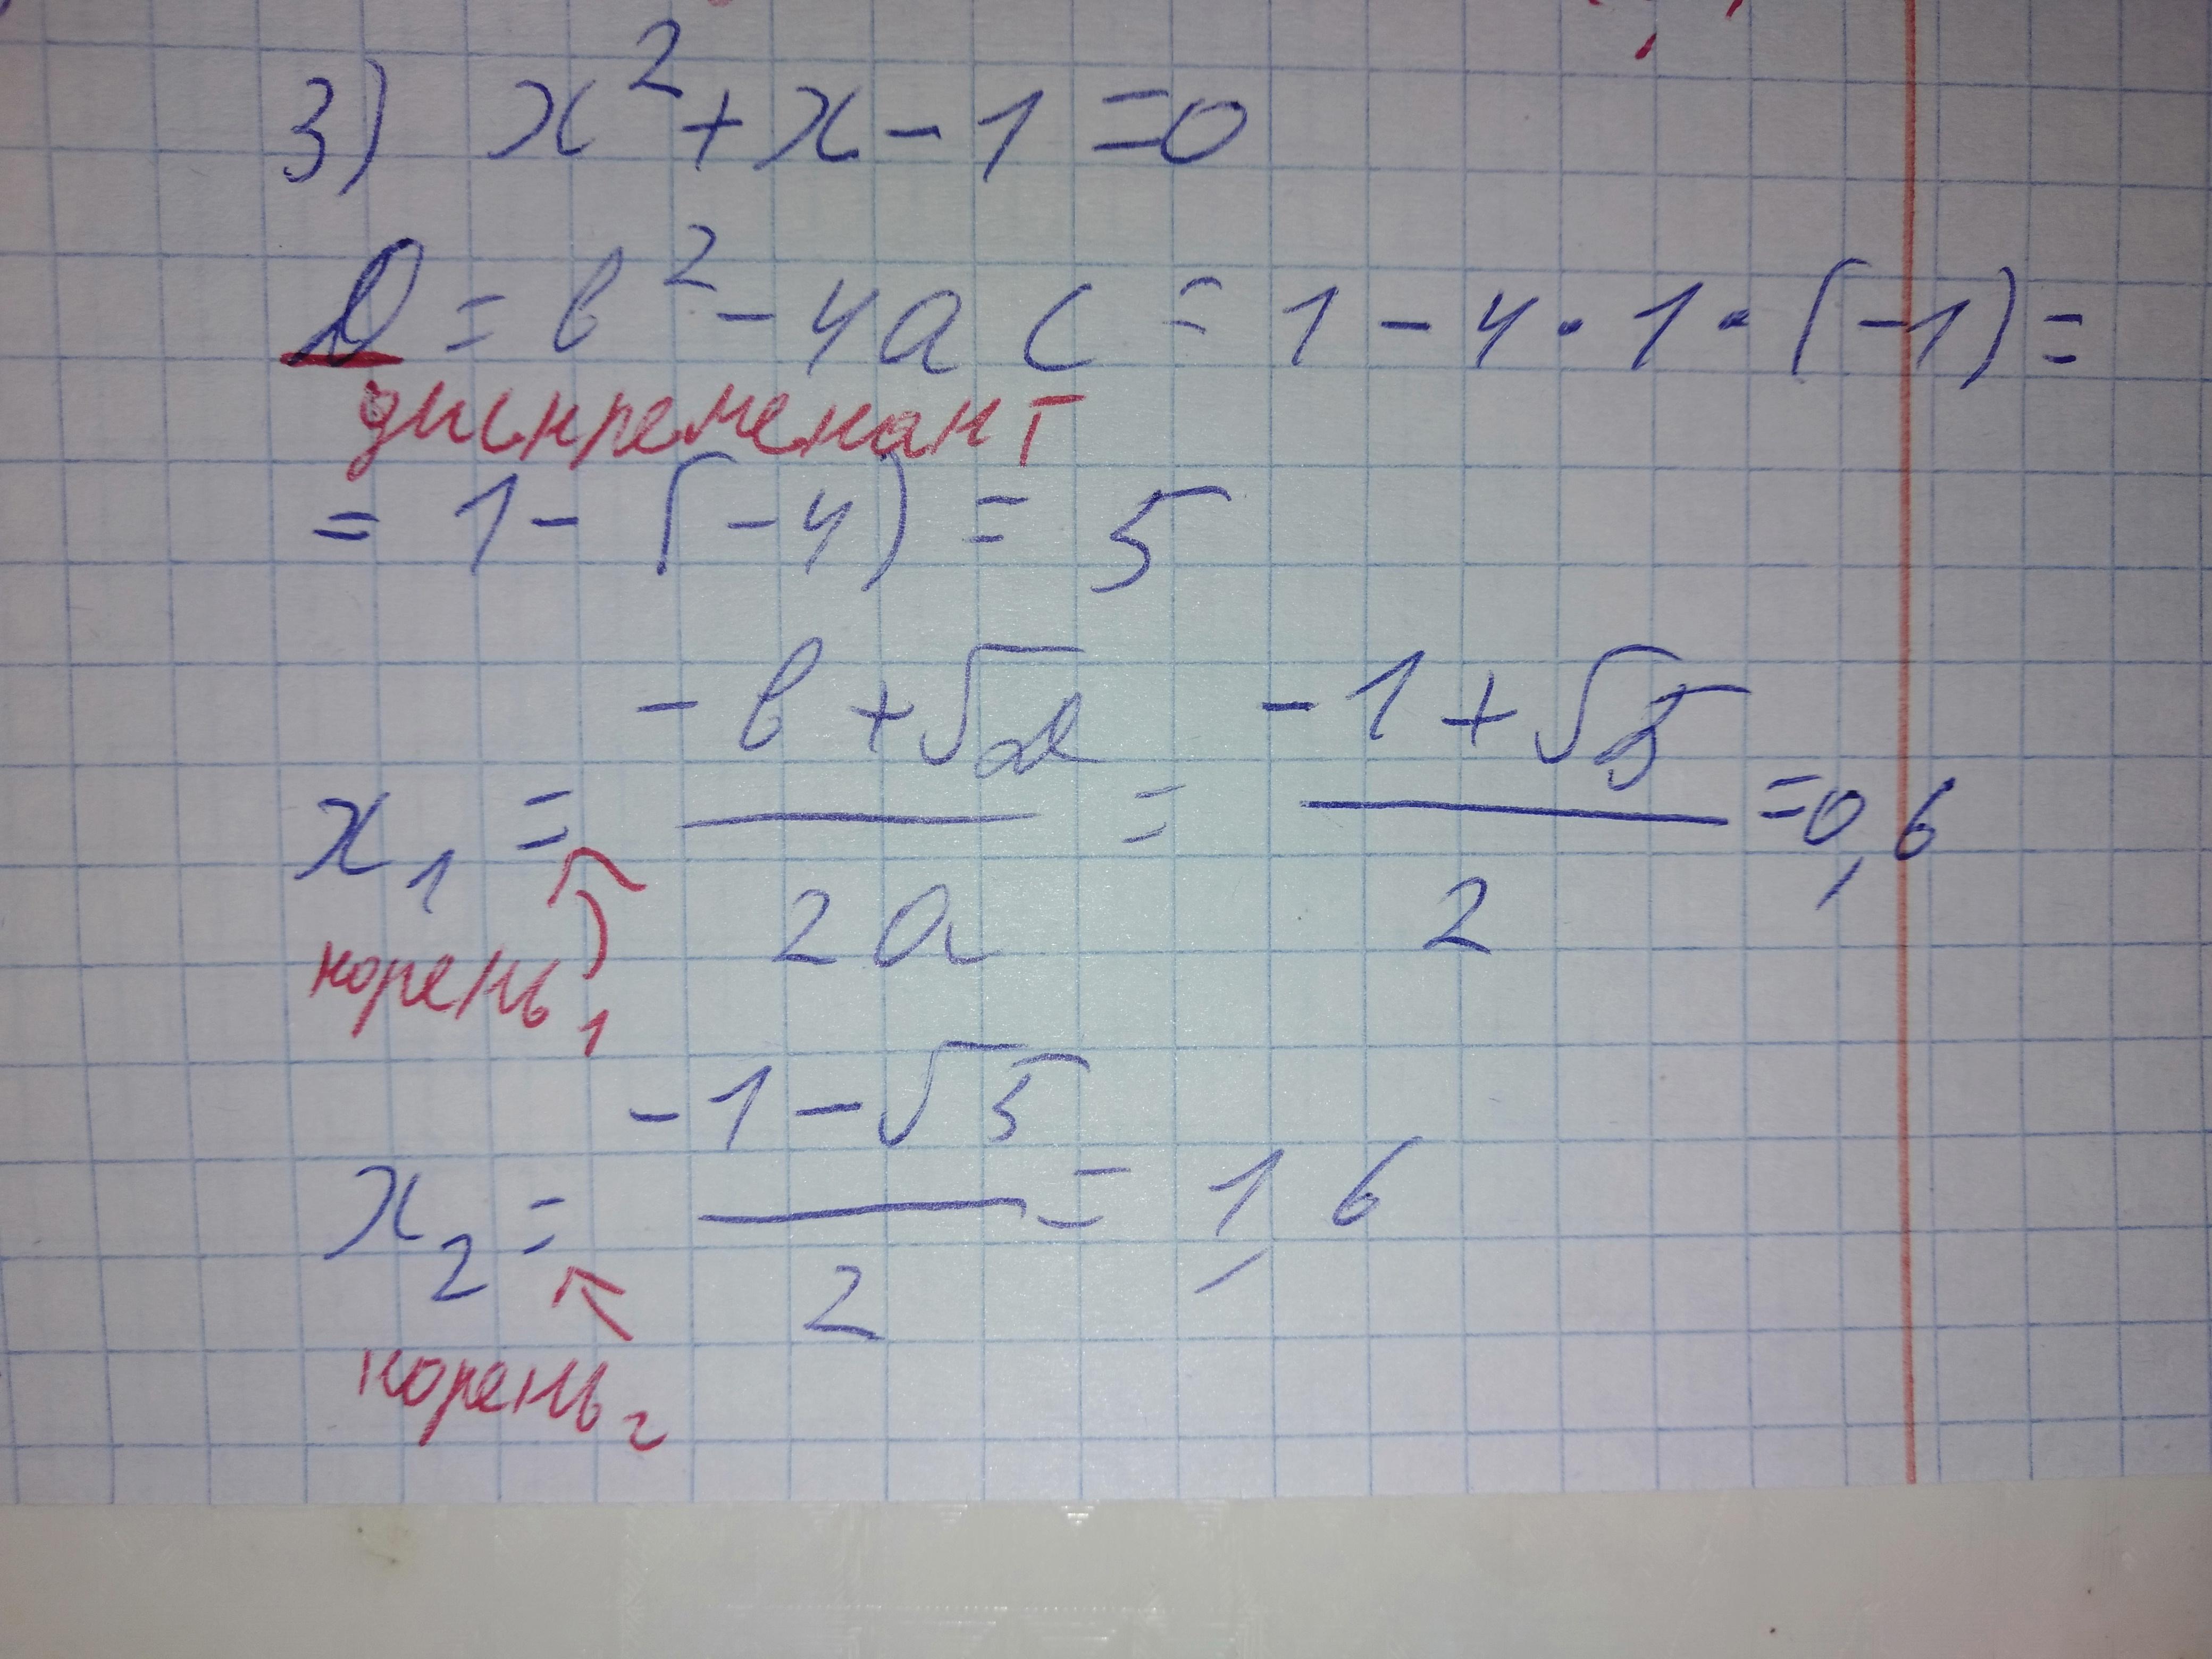 3) x² + x - 1 = 0
D = b² - 4ac = 1 - 4 · 1 · (-1) =
дискременант
= 1 - (-4) = 5
x₁ = (-b + √D) / 2a = (-1 + √5) / 2 = 0,6
корень₁
x₂ = (-1 - √5) / 2 = 1,6
корень₂